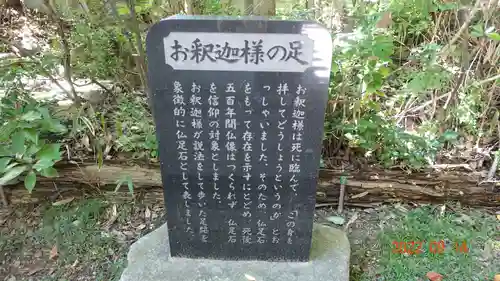 お釈迦様の足
お釈迦様は死に臨んで、「この身を
拝してどうしようというのか」とお
っしゃいました。そのため、仏足石
をもって足を示すにとどめ、死後
五百年間仏像はつくられず 仏足石
を信仰の対象にしました。
お釈迦様が説法をして歩いた足跡を
象徴的に仏足石として表しました。
2022 09 14